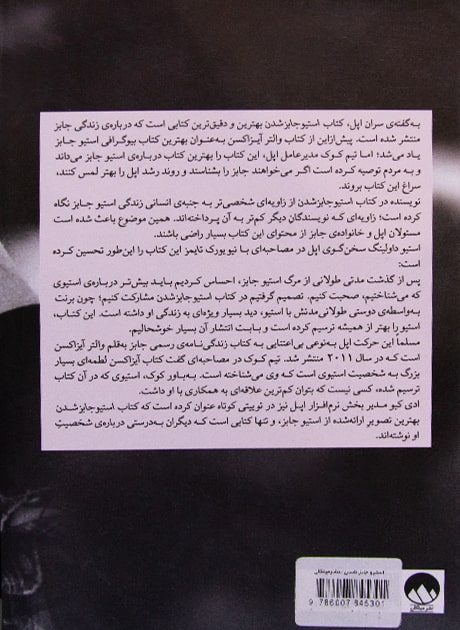 به‌گفته‌ی سران اپل، کتاب استیوجابزشدن بهترین و دقیق‌ترین کتابی است که درباره‌ی زندگی جابز
منتشر شده است. پیش‌ازاین از کتاب والتر آیزاکسن به‌عنوان بهترین کتاب بیوگرافی استیو جابز
یاد می‌شد؛ اما تیم کوک مدیرعامل اپل، این کتاب را بهترین کتاب درباره‌ی استیو جابز می‌داند
و به مردم توصیه کرده است اگر می‌خواهند جابز را بشناسند و روند رشد اپل را بهتر لمس کنند،
سراغ این کتاب بروند.
نویسنده در کتاب استیوجابزشدن از زاویه‌ای شخصی‌تر به جنبه‌ی انسانی زندگی استیو جابز نگاه
کرده است؛ زاویه‌ای که نویسندگان دیگر کم‌تر به آن پرداخته‌اند. همین موضوع باعث شده است
مسئولان اپل و خانواده‌ی جابز از محتوای این کتاب بسیار راضی باشند.
استیو داولینگ سخن‌گوی اپل در مصاحبه‌ای با نیویورک تایمز این کتاب را این‌طور تحسین کرده
است:
پس از گذشت مدتی طولانی از مرگ استیو جابز، احساس کردیم باید بیش‌تر درباره‌ی استیوی
که می‌شناختیم، صحبت کنیم. تصمیم گرفتیم در کتاب استیوجابزشدن مشارکت کنیم؛ چون برنت
به‌واسطه‌ی دوستی طولانی‌مدتش با استیو، دید بسیار ویژه‌ای به زندگی او داشته است. این کتاب،
استیو را بهتر از همیشه ترسیم کرده است و بابت انتشار آن بسیار خوشحالیم.
مسلماً این حرکت اپل به‌نوعی بی‌اعتنایی به کتاب زندگی‌نامه‌ی رسمی جابز به‌قلم والتر آیزاکسن
است که در سال ۲۰۱۱ منتشر شد. تیم کوک در مصاحبه‌ای گفت کتاب آیزاکسن لطمه‌ای بسیار
بزرگ به شخصیت استیوی است که وی می‌شناخته است. به‌باور کوک، استیوی که در آن کتاب
ترسیم شده، کسی نیست که بتوان کم‌ترین علاقه‌ای به همکاری با او داشت.
ادی کیو مدیر بخش نرم‌افزار اپل نیز در توییتی کوتاه عنوان کرده است که کتاب استیوجابزشدن
بهترین تصویر ارائه‌شده از استیو جابز، و تنها کتابی است که دیگران به‌درستی درباره‌ی شخصیت
او نوشته‌اند.
9 786007 845301